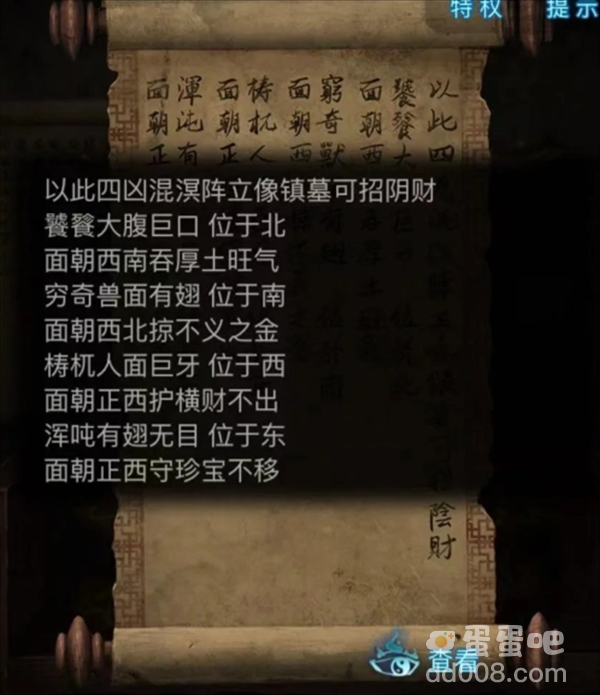 特权 提示
以此四凶混溟阵立像镇墓可招阴财
饕餮大腹巨口 位于北
面朝西南吞厚土旺气
穷奇兽面有翅 位于南
面朝西北掠不义之金
梼杌人面巨牙 位于西
面朝正西护横财不出
浑吨有翅无目 位于东
面朝正西守珍宝不移
以此四
饕餮大
面朝西
窮奇獸
面朝西
梼杌人
面朝正
渾沌有
面朝正
陰財
查看
蛋蛋吧
dd008.com